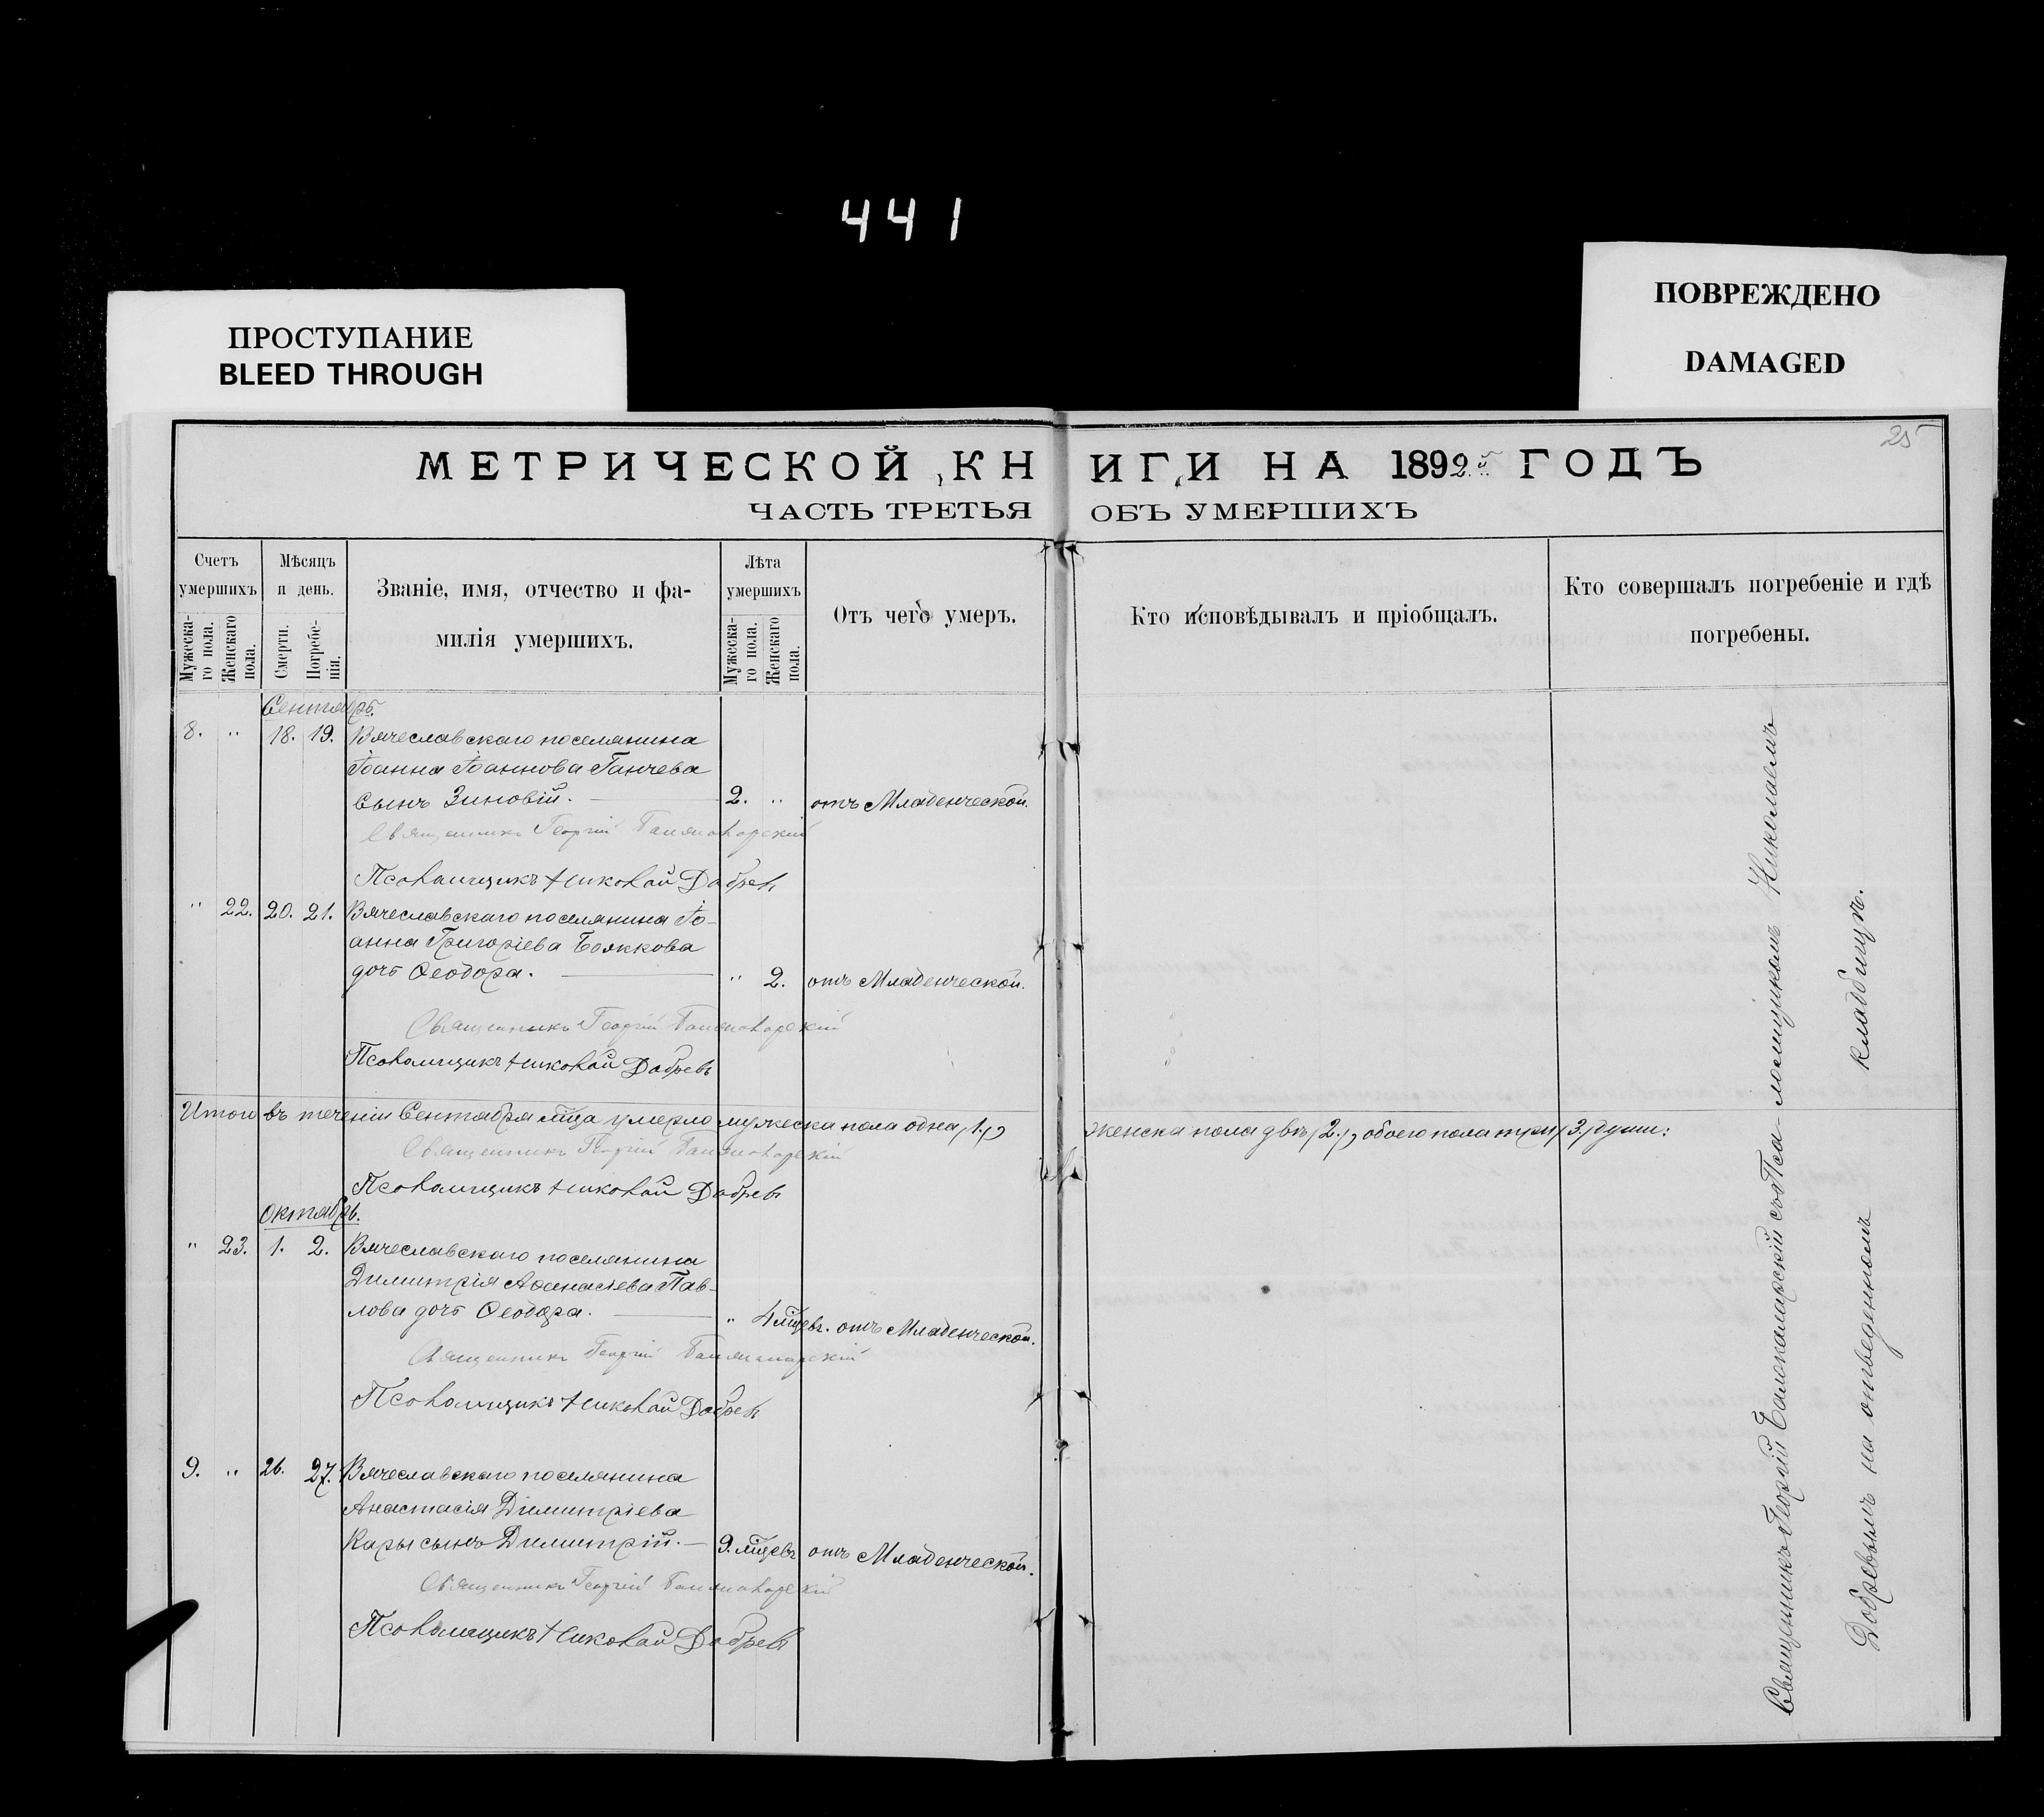 441
ПРОСТУПАНИЕ
BLEED THROUGH
ПОВРЕЖДЕНО
DAMAGED
25
МЕТРИЧЕСКОЙ КНИГИ НА 1892й ГОДЪ
ЧАСТЬ ТРЕТЬЯ ОБЪ УМЕРШИХЪ
Счетъ умершихъ
Мужеска-го пола.
Женскаго пола.
Мѣсяцъ и день.
Смерти.
Погребе-нія.
Званіе, имя, отчество и фа-
милія умершихъ.
Лѣта умершихъ
Мужеска-го пола.
Женскаго пола.
Отъ чего умеръ.
Кто исповѣдывалъ и пріобщалъ.
Кто совершалъ погребеніе и гдѣ
погребены.
Сентябрь.
8. " 18. 19. Вячеславскаго поселянина
Іоанна Іоаннова Ганчева
сынъ Зиновій. 2. " отъ Младенческой.
Священникъ Георгій
Псаломщикъ Николай Добревъ
" 22. 20. 21. Вячеславскаго поселянина Іо-
анна Григоріева Бояжкова
дочь Ѳеодора. " 2. отъ Младенческой.
Священникъ Георгій
Псаломщикъ Николай Добревъ
Итого въ теченіи Сентября м̃ца умерло мужеска пола одна (1.), женска пола двѣ (2.), обоего пола три (3.) души:
Священникъ Георгій
Псаломщикъ Николай Добревъ
Октябрь.
" 23. 1. 2. Вячеславскаго поселянина
Димитрія Аѳанасіева Пав-
лова дочь Ѳеодора. " 4 м̃цевъ. отъ Младенческой.
Священникъ Георгій
Псаломщикъ Николай Добревъ
9. " 26. 27. Вячеславскаго поселянина
Анастасія Димитріева
Кары сынъ Димитрій. 9. м̃цевъ отъ Младенческой.
Священникъ Георгій
Псаломщикъ Николай Добревъ
Священникъ Георгій со Псаломщикомъ Николаемъ
Добревымъ на отведенномъ кладбищѣ.